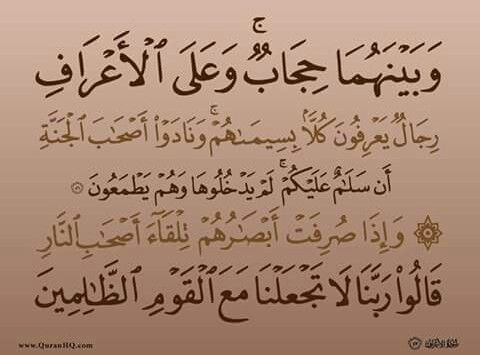 وَبَيْنَهُمَا حِجَابٌ ۚ وَعَلَى ٱلْأَعْرَافِ
رِجَالٌ يَعْرِفُونَ كُلًّۢا بِسِيمَىٰهُمْ ۚ وَنَادَوْا۟ أَصْحَـٰبَ ٱلْجَنَّةِ
أَن سَلَـٰمٌ عَلَيْكُمْ ۚ لَمْ يَدْخُلُوهَا وَهُمْ يَطْمَعُونَ ٤٦
۞ وَإِذَا صُرِفَتْ أَبْصَـٰرُهُمْ تِلْقَآءَ أَصْحَـٰبِ ٱلنَّارِ
قَالُوا۟ رَبَّنَا لَا تَجْعَلْنَا مَعَ ٱلْقَوْمِ ٱلظَّـٰلِمِينَ
www.QuranHQ.com